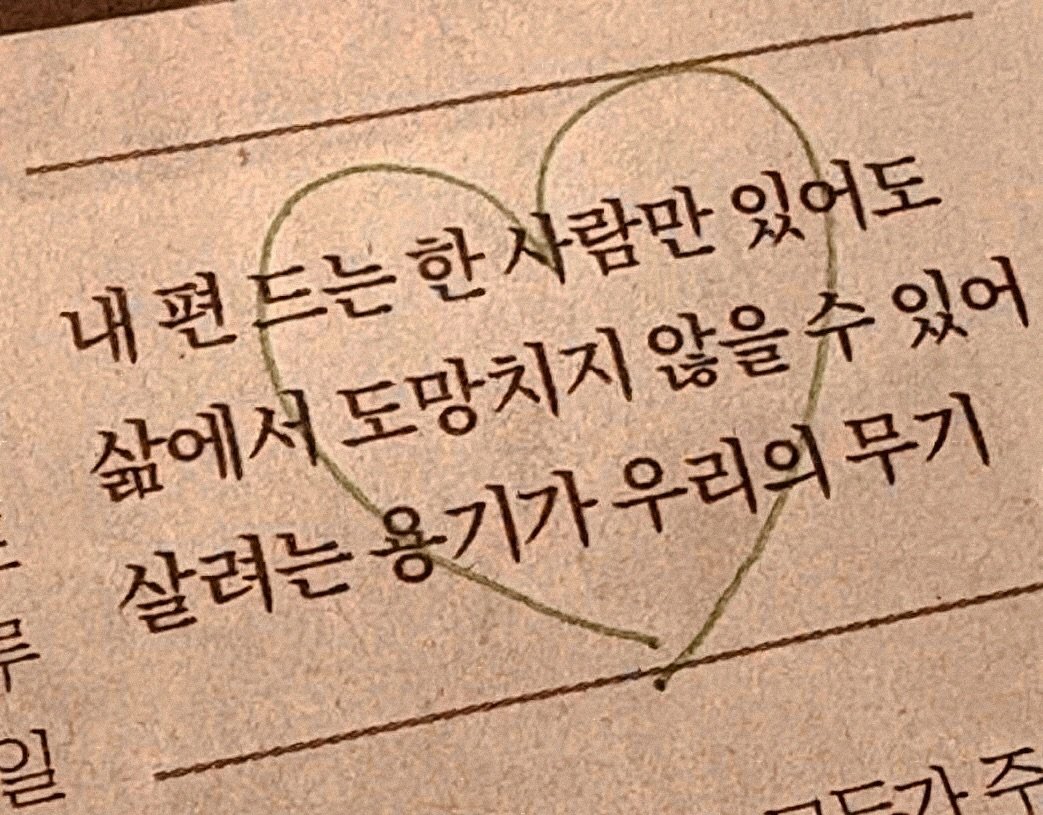 내 편 드는 한 사람만 있어도
삶에서 도망치지 않을 수 있어
살려는 용기가 우리의 무기
일